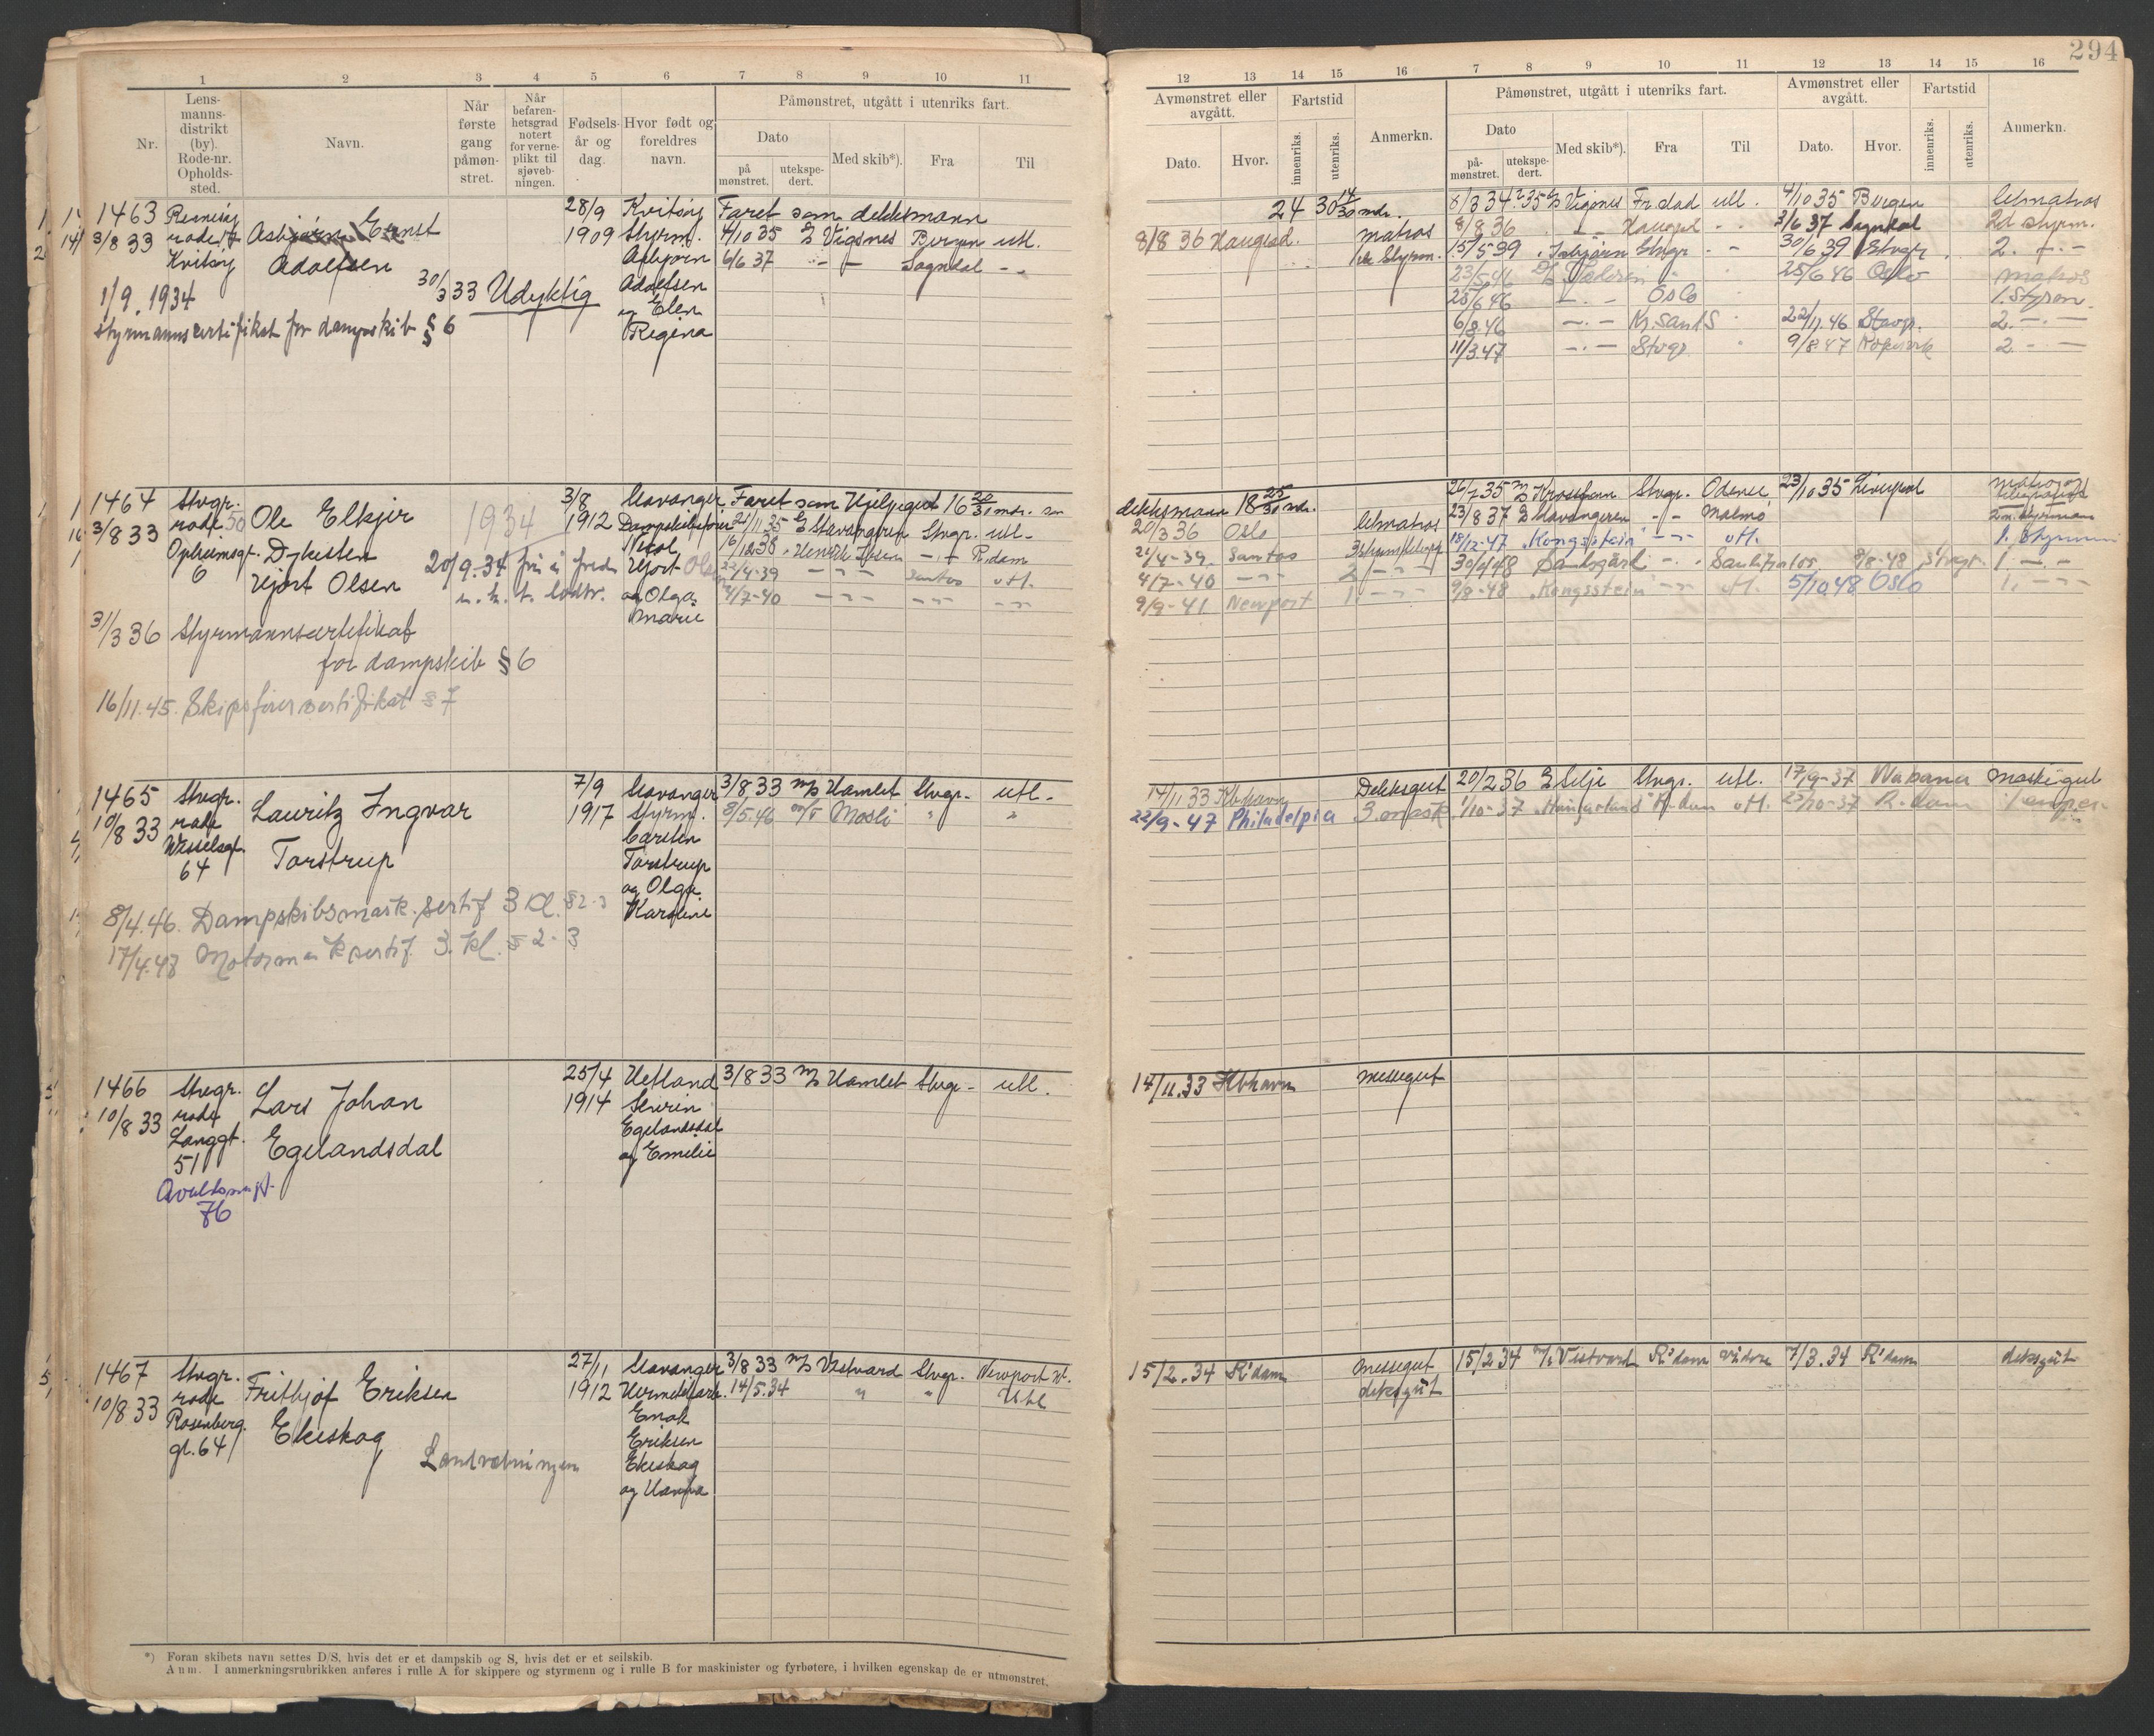 294
1 2 3 4 5 6 7 8 9 10 11
12 13 14 15 16 7 8 9 10 11 12 13 14 15 16
Nr.
Lens-
manns-
distrikt
(by).
Rode-nr.
Opholds-
sted.
Navn.
Når
første
gang
påmøn-
stret.
Når
befaren-
hetsgrad
notert
for verne-
plikt til
sjøveb-
ningen.
Fødsels-
år og
dag.
Hvor født og
foreldres
navn.
Påmønstret, utgått i utenriks fart.
Dato
på
mønstret.
utekspe-
dert.
Med skib*).
Fra
Til
Avmønstret eller
avgått.
Dato.
Hvor.
Fartstid
innenriks.
utenriks.
Anmerkn.
Påmønstret, utgått i utenriks fart.
Dato
på-
mønstret.
utekspe-
dert.
Med skib*).
Fra
Til
Avmønstret eller
avgått.
Dato.
Hvor.
Fartstid
innenriks.
utenriks.
Anmerkn.
1463
3/8 33
rode
Kvitsøy
Asbjørn Ernst
Adolfsen
30/3 33 Udyktig
1/9. 1934
Styrmannssertifikat for dampskib § 6
28/9
1909
Kvitsøy
Styrm.
Asbjørn
Adolfsen
og Elen
Regina
Faret som dekksmann
4/10 35 Vigsnes Bergen utl.
6/6 37 - - Sogndal - -
24 30 14/30 mdr.
8/8 36 Haugesd. matros
Vigsnes Fr.stad utl. 4/10 35 Bergen letmatros
8/8 36 - - Haugesd - - 3/6 37 Sogndal 2d styrm.
15/5 39 Stvgr - - 30/6 39 Stvgr 2. - -
23/5 46 25/6 46 Oslo matros
25/6 46 - - Oslo 1. Styrm.
6/8 46 - - Kr.sand S 22/11 46 Stavgr. 2. - -
11/3.47 - - Stvgr 9/8.47 Kopervik 2. - -
1464
3/8 33
Stvgr.
rode 50
Opheimsgt.
6
Ole Elkjer
Dykesten
Hjort Olsen
1934
20/9.34 fri i fred
31/3 36 Styrmannssertifikat
for dampskib § 6
16/11.45. Skipsførersertifikat § 7
3/8
1912
Stavanger
Dampskibsfører
Nicol.
Hjort Olsen
og Olga
Marie
Faret som Hjelpegut 16 20/30 mdr. som
dekksmann 18 25/30 mdr.
21/11 35 Stavangeren Stvgr. utl.
16/12 38 Henrik Ibsen - - R.dam
22/4-39 - - - Santos utl.
4/7-40 - - - - - - -
20/3 36 Oslo letmatros
21/4-39. Santos
4/7-40 - - - 2 - - -
9/9-41 Newport 1. - - -
26/7 35 Krossfonn Stvgr. Odense 23/10 35 Liverpool
23/8 37 Stavangeren - - Malmø
18/12-47 "Kongsstein" - - utl. 1. Styrmann
8/8-48 Stvgr. 1. - -
9/8-48 "Kongsstein" - - utl. 5/10 48 Oslo 1. - - -
1465
10/8 33
Stvgr.
rode
Wesselsgt.
64
Lauritz Ingvar
Torstrup
8/4.46. Dampskibsmask. sertif 3 kl. § 2-3
17/4.47 Motormask sertif. 3. kl. § 2-3
7/9
1917
Stavanger
Styrm.
Carsten
Torstrup
og Olga
Karoline
3/8 33 m/s Hamlet Stvgr. utl.
8/5.46 m/t Mosli " "
14/11 33 Kbhavn Dekksgut
22/9-47 Philadelpia 3. mask
20/2 36 Silje Stvgr. utl. 17/9-37 Wabana
1/10-37 R.dam utl. 23/10-37 R.dam
1466
10/8 33
Stvgr.
rode
Langgt.
51
Avaldsnesgt.
76
Lars Johan
Egelandsdal
25/4
1914
Hetland
Severin
Egelandsdal
og Emilie
3/8 33 m/s Hamlet Stvgr. utl.
14/11.33 Kbhavn messegut
1467
10/8 33
Stvgr.
rode
Rosenberg
gt. 64
Fritjhof Eriksen
Ekeskog
Landvebningen
27/11
1912
Stavanger
Hermetikkarb.
Enok
Eriksen
Ekeskog
og Hanna
3/8 33 m/s Vestvard Stvgr. Newport
14/5.34 " " Utl
15/2.34 R'dam messegut
deksgut
15/2 34 m/s Vestvard R'dam 7/3.34 R'dam deksgut
*) Foran skibets navn settes D/S, hvis det er et dampskib og S, hvis det er et seilskib.
Anm. I anmerkningsrubrikken anføres i rulle A for skippere og styrmenn og i rulle B for maskinister og fyrbøtere, i hvilken egenskap de er utmønstret.